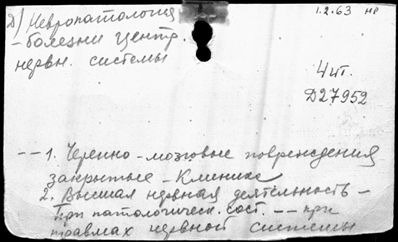 Д) Невропатология 1.2.63 нр
- болезни центр.
нервн. системы
4 чт.
Д27952
-- 1. Черепно-мозговые повреждения
закрытые - Клинике
2. Высшая нервная деятельность -
при патологическ. сост. -- при
травмах нервной системы